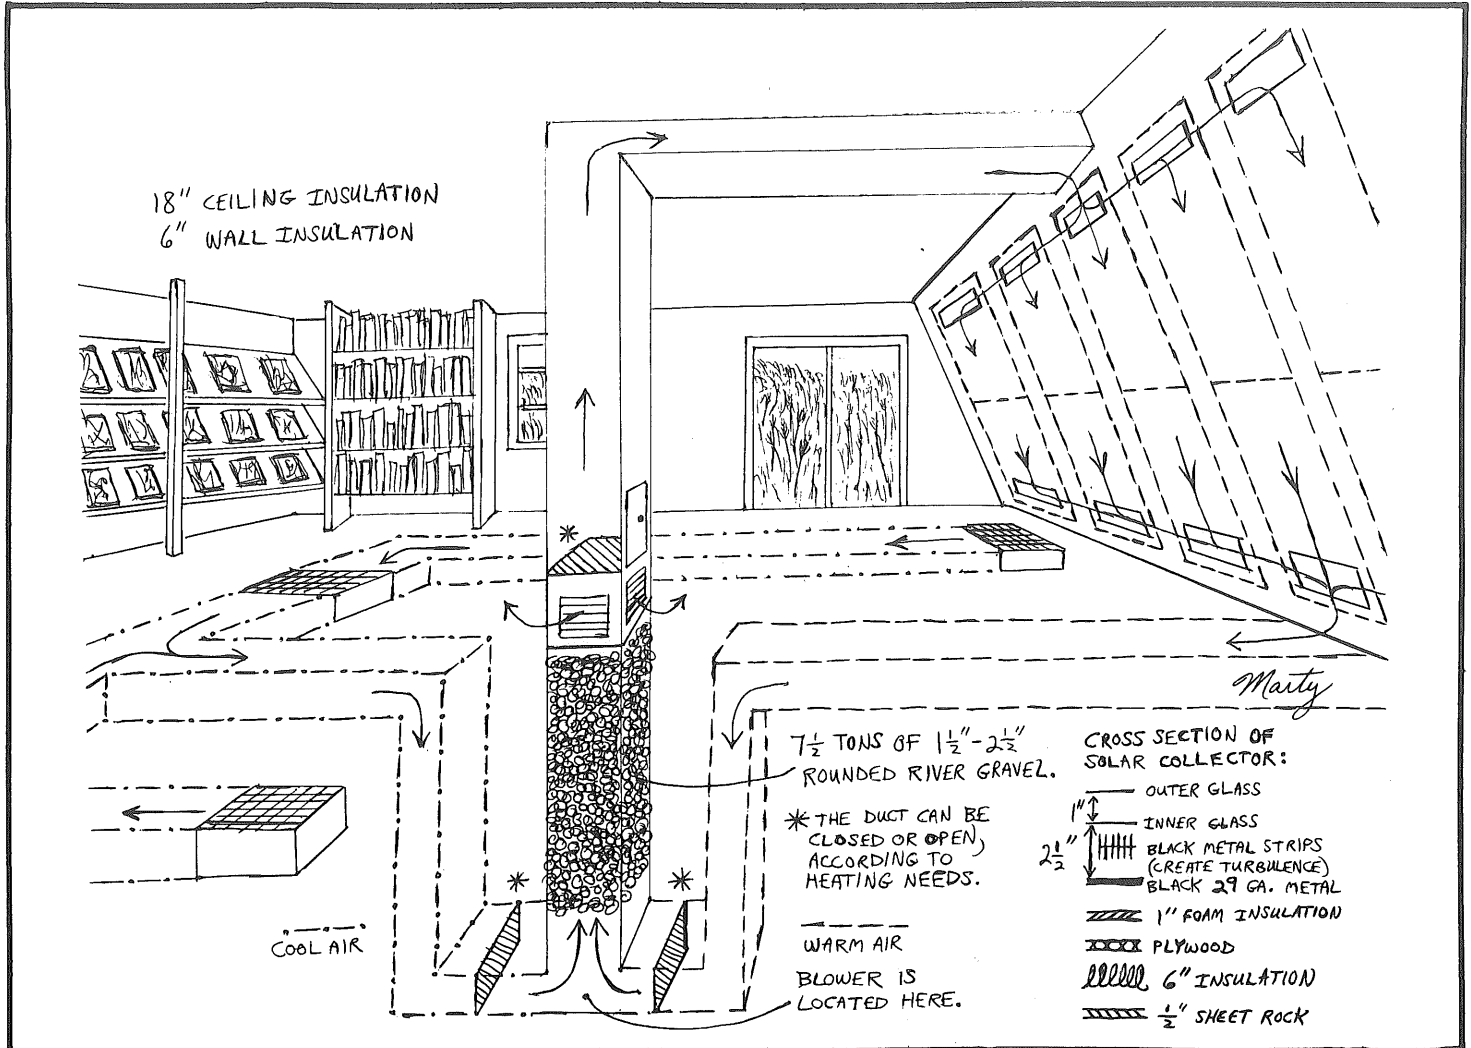 18" CEILING INSULATION
6" WALL INSULATION
Marty
7 1/2 TONS OF 1 1/2"-2 1/2"
ROUNDED RIVER GRAVEL.
* THE DUCT CAN BE
CLOSED OR OPEN,
ACCORDING TO
HEATING NEEDS.
WARM AIR
BLOWER IS
LOCATED HERE.
COOL AIR
CROSS SECTION OF
SOLAR COLLECTOR:
OUTER GLASS
1"
INNER GLASS
2 1/2"
BLACK METAL STRIPS
(CREATE TURBULENCE)
BLACK 29 GA. METAL
1" FOAM INSULATION
PLYWOOD
6" INSULATION
1/2" SHEET ROCK